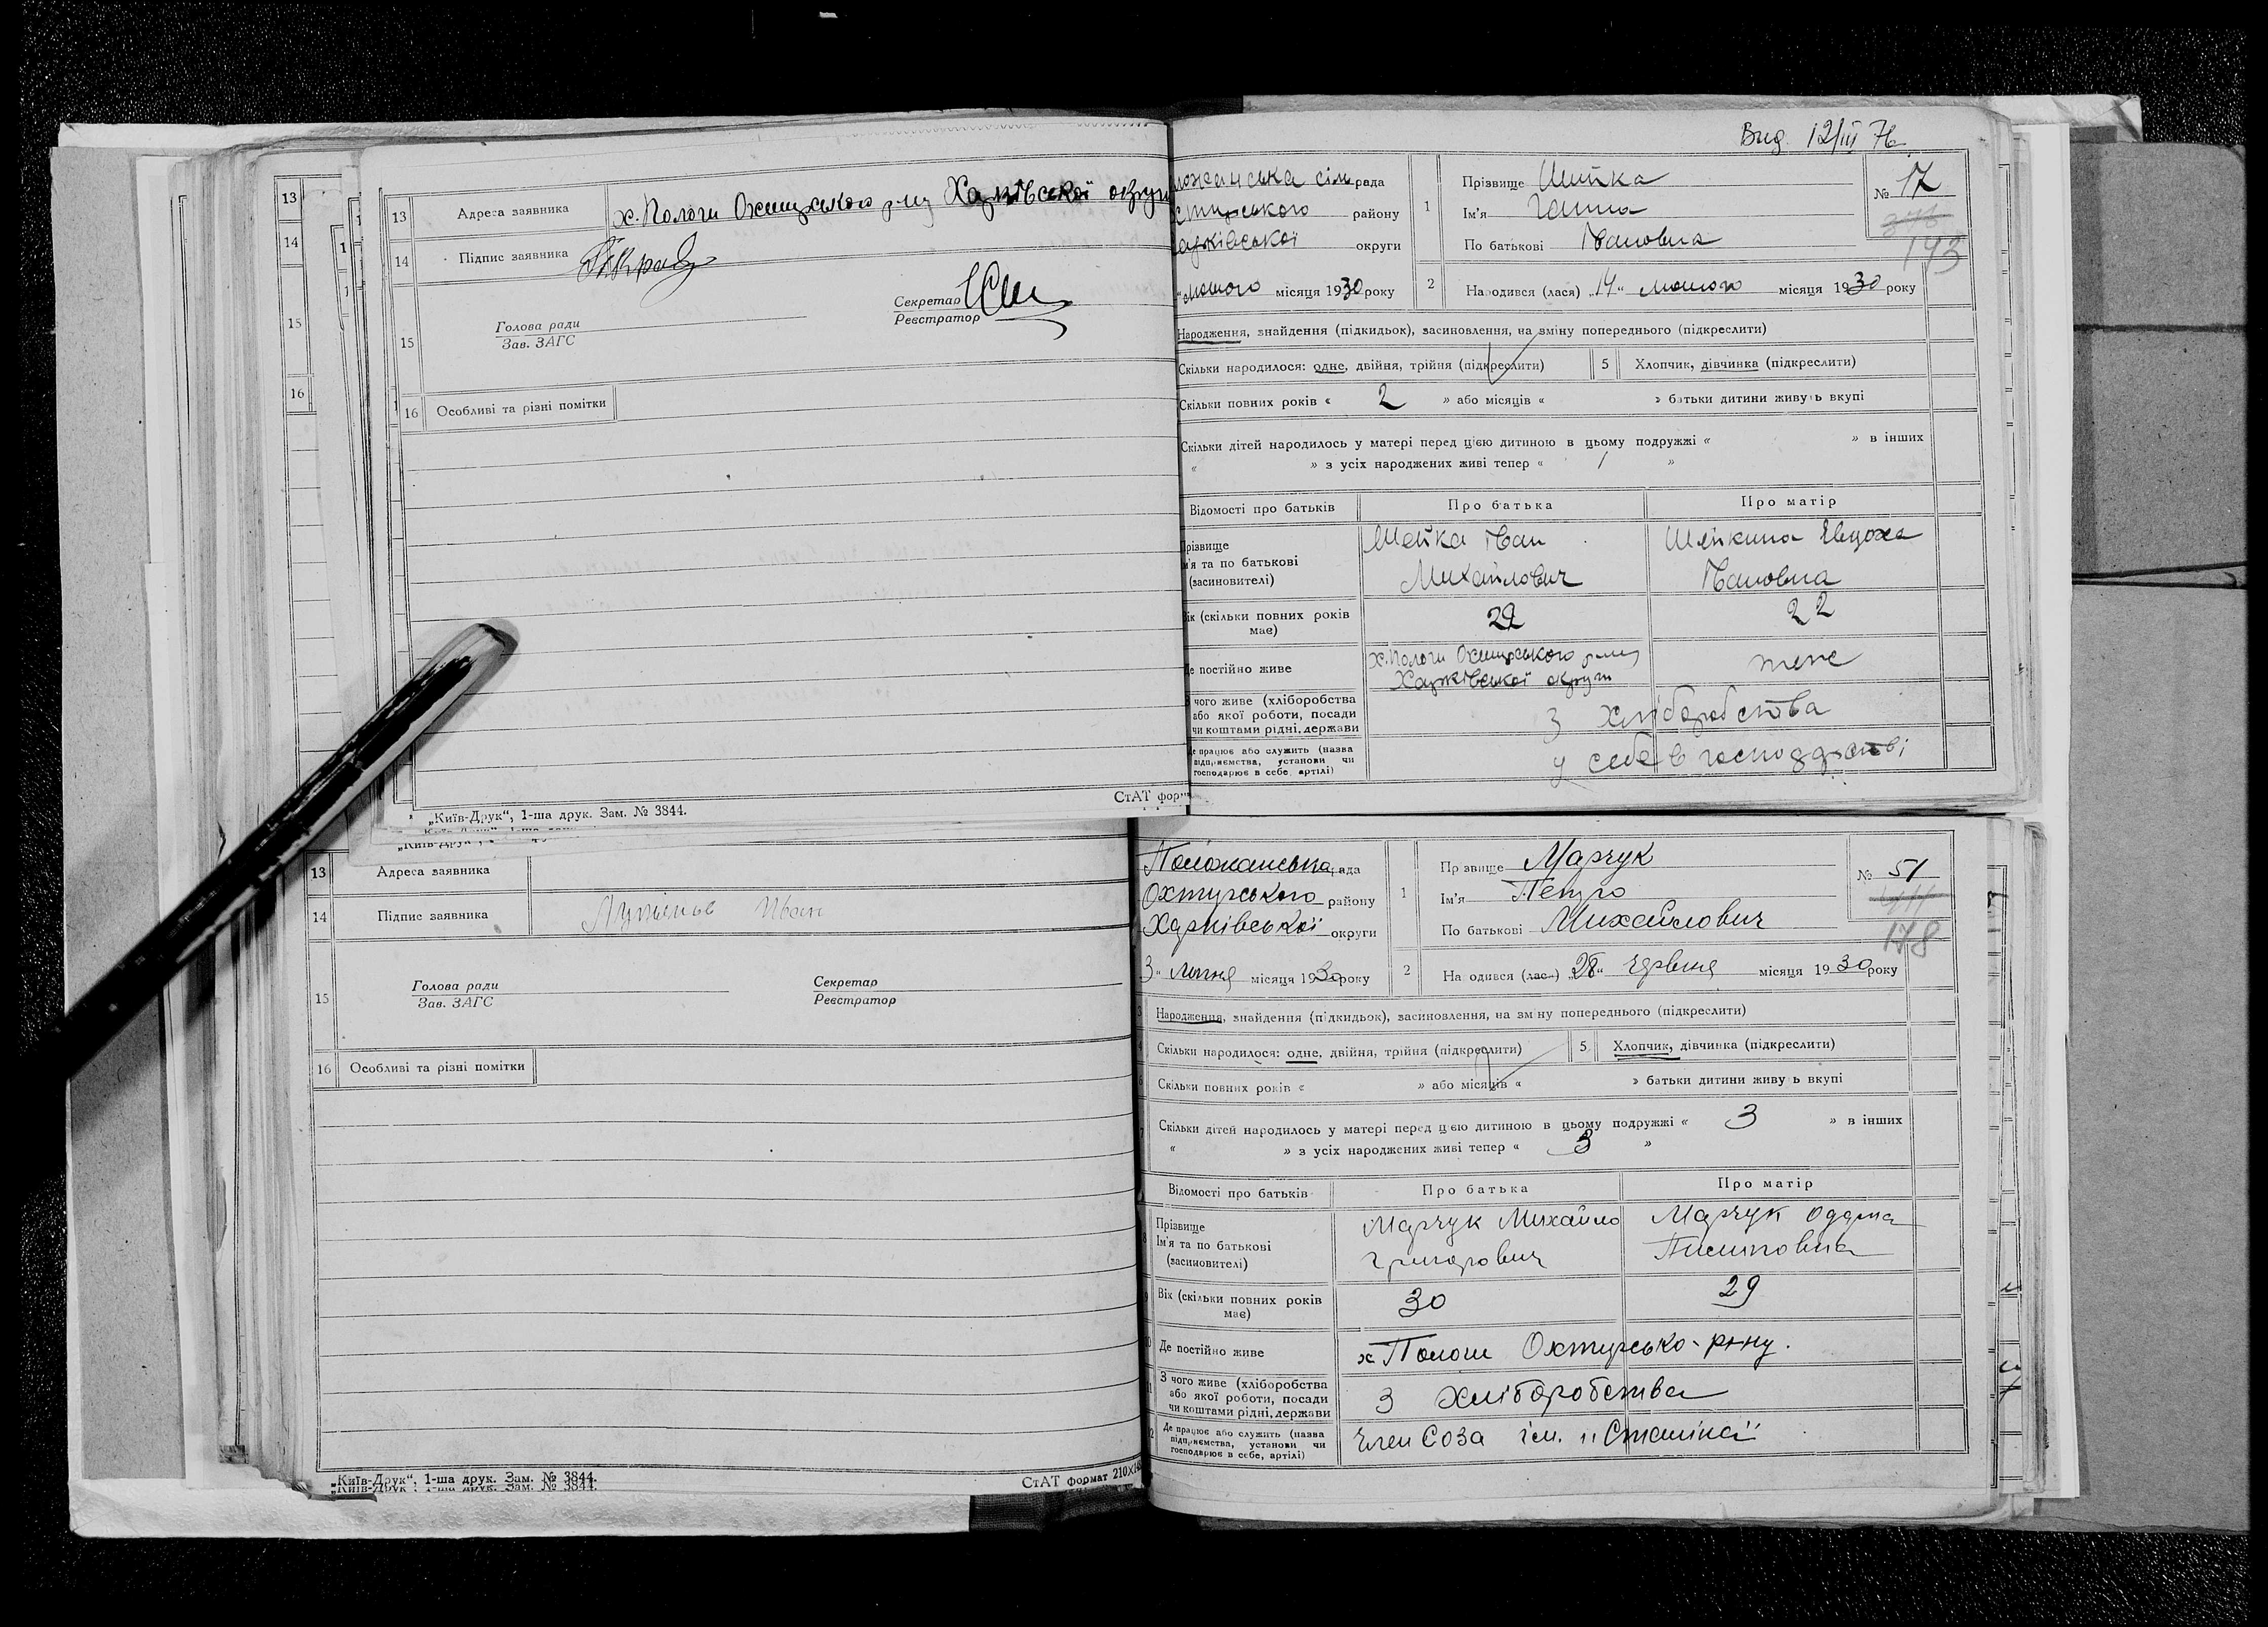 13
14
15
16
13 Адреса заявника х. Пологи Охтирського р-ну Харківської округи
14 Підпис заявника
15 Голова ради
Зав. ЗАГС
Секретар
Реєстратор
16 Особливі та різні помітки
„Київ-Друк“, 1-ша друк. Зам. № 3844.
СтАТ фор
Вид. 12/III 76
ложанська сіль рада
стирського району
арківської округи
лютого місяця 1930 року
1 Прізвище Шийка
Ім'я Ганна
По батькові Івановна
№ 17
193
2 Народився (лася) „14“ лютого місяця 1930 року
Народження, знайдення (підкидьок), засиновлення, на зміну попереднього (підкреслити)
Скільки народилося: одне, двійня, трійня (підкреслити)
5 Хлопчик, дівчинка (підкреслити)
Скільки повних років « 2 » або місяців « » батьки дитини живуть вкупі
Скільки дітей народилось у матері перед цією дитиною в цьому подружжі « » в інших
« » з усіх народжених живі тепер « 1 »
Відомості про батьків Про батька Про матір
Прізвище
м'я та по батькові
(засиновителі)
Шейка Іван
Михайлович
Шейкина Евдоха
Івановна
Вік (скільки повних років
має)
22
22
Де постійно живе
х. Пологи Охтирського р-ну
Харківської округи
теже
чого живе (хліборобства
або якої роботи, посади
чи коштами рідні, держави
З хліборобства
Де працює або служить (назва
підприємства, установи чи
господарює в себе, артілі)
у себе в господарстві
13 Адреса заявника
14 Підпис заявника Иван
15 Голова ради
Зав. ЗАГС
Секретар
Реєстратор
16 Особливі та різні помітки
„Київ-Друк“, 1-ша друк. Зам. № 3844.
СтАТ формат 210×1
Положанська рада
Охтирського району
Харківської округи
3 „ липня місяця 1930 року
1 Прізвище Марчук
Ім'я Петро
По батькові Михайлович
№ 51
178
2 Народився (лась) „28“ червня місяця 1930 року
3 Народження, знайдення (підкидьок), засиновлення, на зміну попереднього (підкреслити)
4 Скільки народилося: одне, двійня, трійня (підкреслити)
5 Хлопчик, дівчинка (підкреслити)
6 Скільки повних років « » або місяців « » батьки дитини живуть вкупі
7 Скільки дітей народилось у матері перед цією дитиною в цьому подружжі « 3 » в інших
« » з усіх народжених живі тепер « 3 »
Відомості про батьків Про батька Про матір
8 Прізвище
Ім'я та по батькові
(засиновителі)
Марчук Михайло
Григорович
Марчук
9 Вік (скільки повних років
має)
30
29
10 Де постійно живе х Пологи Охтирсько- р-ну.
11 З чого живе (хліборобства
або якої роботи, посади
чи коштами рідні, держави
З хліборобства
12 Де працює або служить (назва
підприємства, установи чи
господарює в себе, артілі)
Член Соза ім. „Сталіна“